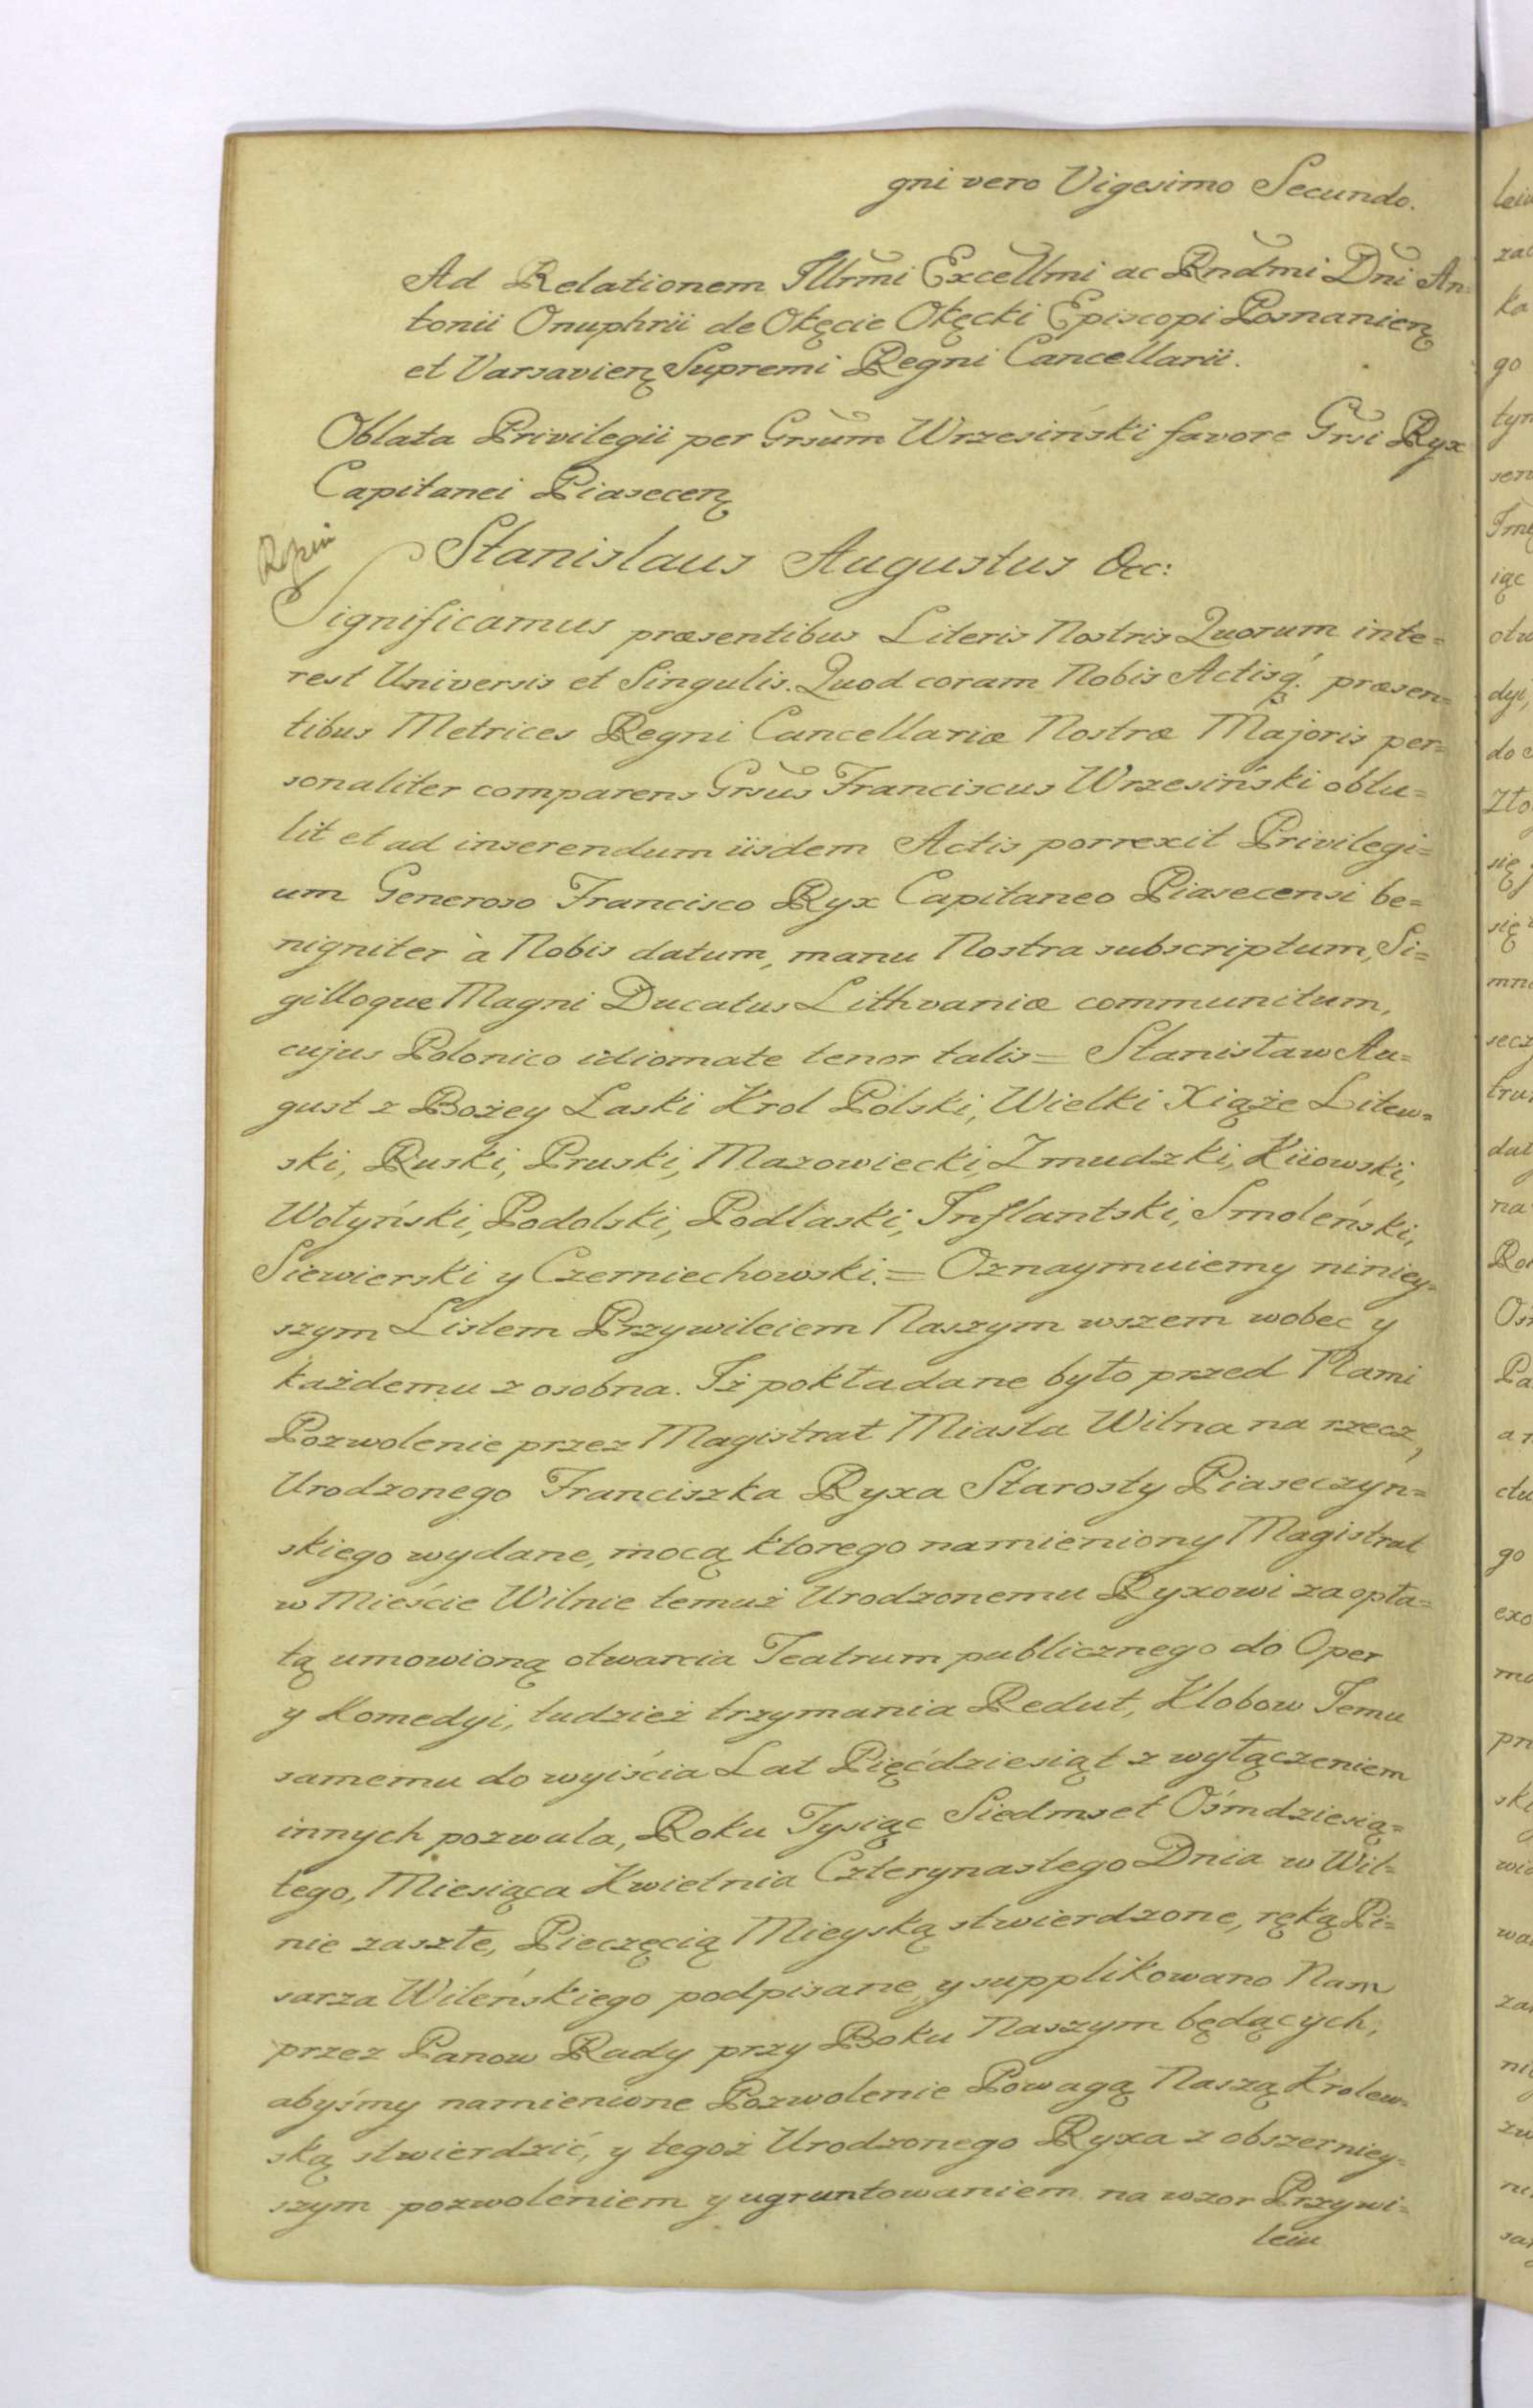 gni vero Vigesimo Secundo.
Ad Relationem Illrmi Excellmi ac Rndmi Dni An=
tonii Onuphrii de Okęcie Okęcki Episcopi Posnanien
et Varsavien Supremi Regni Cancellarii.
Oblata Privilegii per Grsum Wrzesiński favore Grsi Ryx
Capitanei Piasecen
Stanislaus Augustus &c:
Significamus præsentibus Literis Nostris Quorum inte=
rest Universis et Singulis. Quod coram Nobis Actisq. præsen=
tibus Metrices Regni Cancellariæ Nostræ Majoris per=
sonaliter comparens Grsus Franciscus Wrzesiński obtu=
lit et ad inserendum iisdem Actis porrexit Privilegi=
um Generoso Francisco Ryx Capitaneo Piasecensi be=
nigniter à Nobis datum, manu Nostra subscriptum, Si=
gilloque Magni Ducatus Lithvaniæ communitum,
cujus Polonico idiomate tenor talis = Stanisław Au=
gust z Bożey Łaski Krol Polski, Wielki Xiąże Litew=
ski, Ruski, Pruski, Mazowiecki, Zmudzki, Kiiowski,
Wołyński, Podolski, Podlaski, Inflantski, Smoleński,
Siewierski y Czerniechowski. = Oznaymuiemy niniey=
szym Listem Przywileiem Naszym wszem wobec y
każdemu z osobna. Iż pokładane było przed Nami
Pozwolenie przez Magistrat Miasta Wilna na rzecz,
Urodzonego Franciszka Ryxa Starosty Piaseczyn=
skiego wydane, mocą ktorego namieniony Magistrat
w Mieście Wilnie temuż Urodzonemu Ryxowi za opła=
tą umowioną otwarcia Teatrum publicznego do Oper
y Komedyi, tudzież trzymania Redut, Klobow Temu
samemu do wyiścia Lat Pięćdziesiąt z wyłączeniem
innych pozwala, Roku Tysiąc Siedmset Ośmdziesią=
tego, Miesiąca Kwietnia Czterynastego Dnia w Wil=
nie zaszłe, Pieczęcią Mieyską stwierdzone, ręką Pi=
sarza Wileńskiego podpisane, y supplikowano Nam
przez Panow Rady przy Boku Naszym będących,
abyśmy namienione Pozwolenie Powagą Naszą Krolew=
ską stwierdzić, y tegoż Urodzonego Ryxa z obszerniey=
szym pozwoleniem y ugruntowaniem na wzor Przywi=
leiu